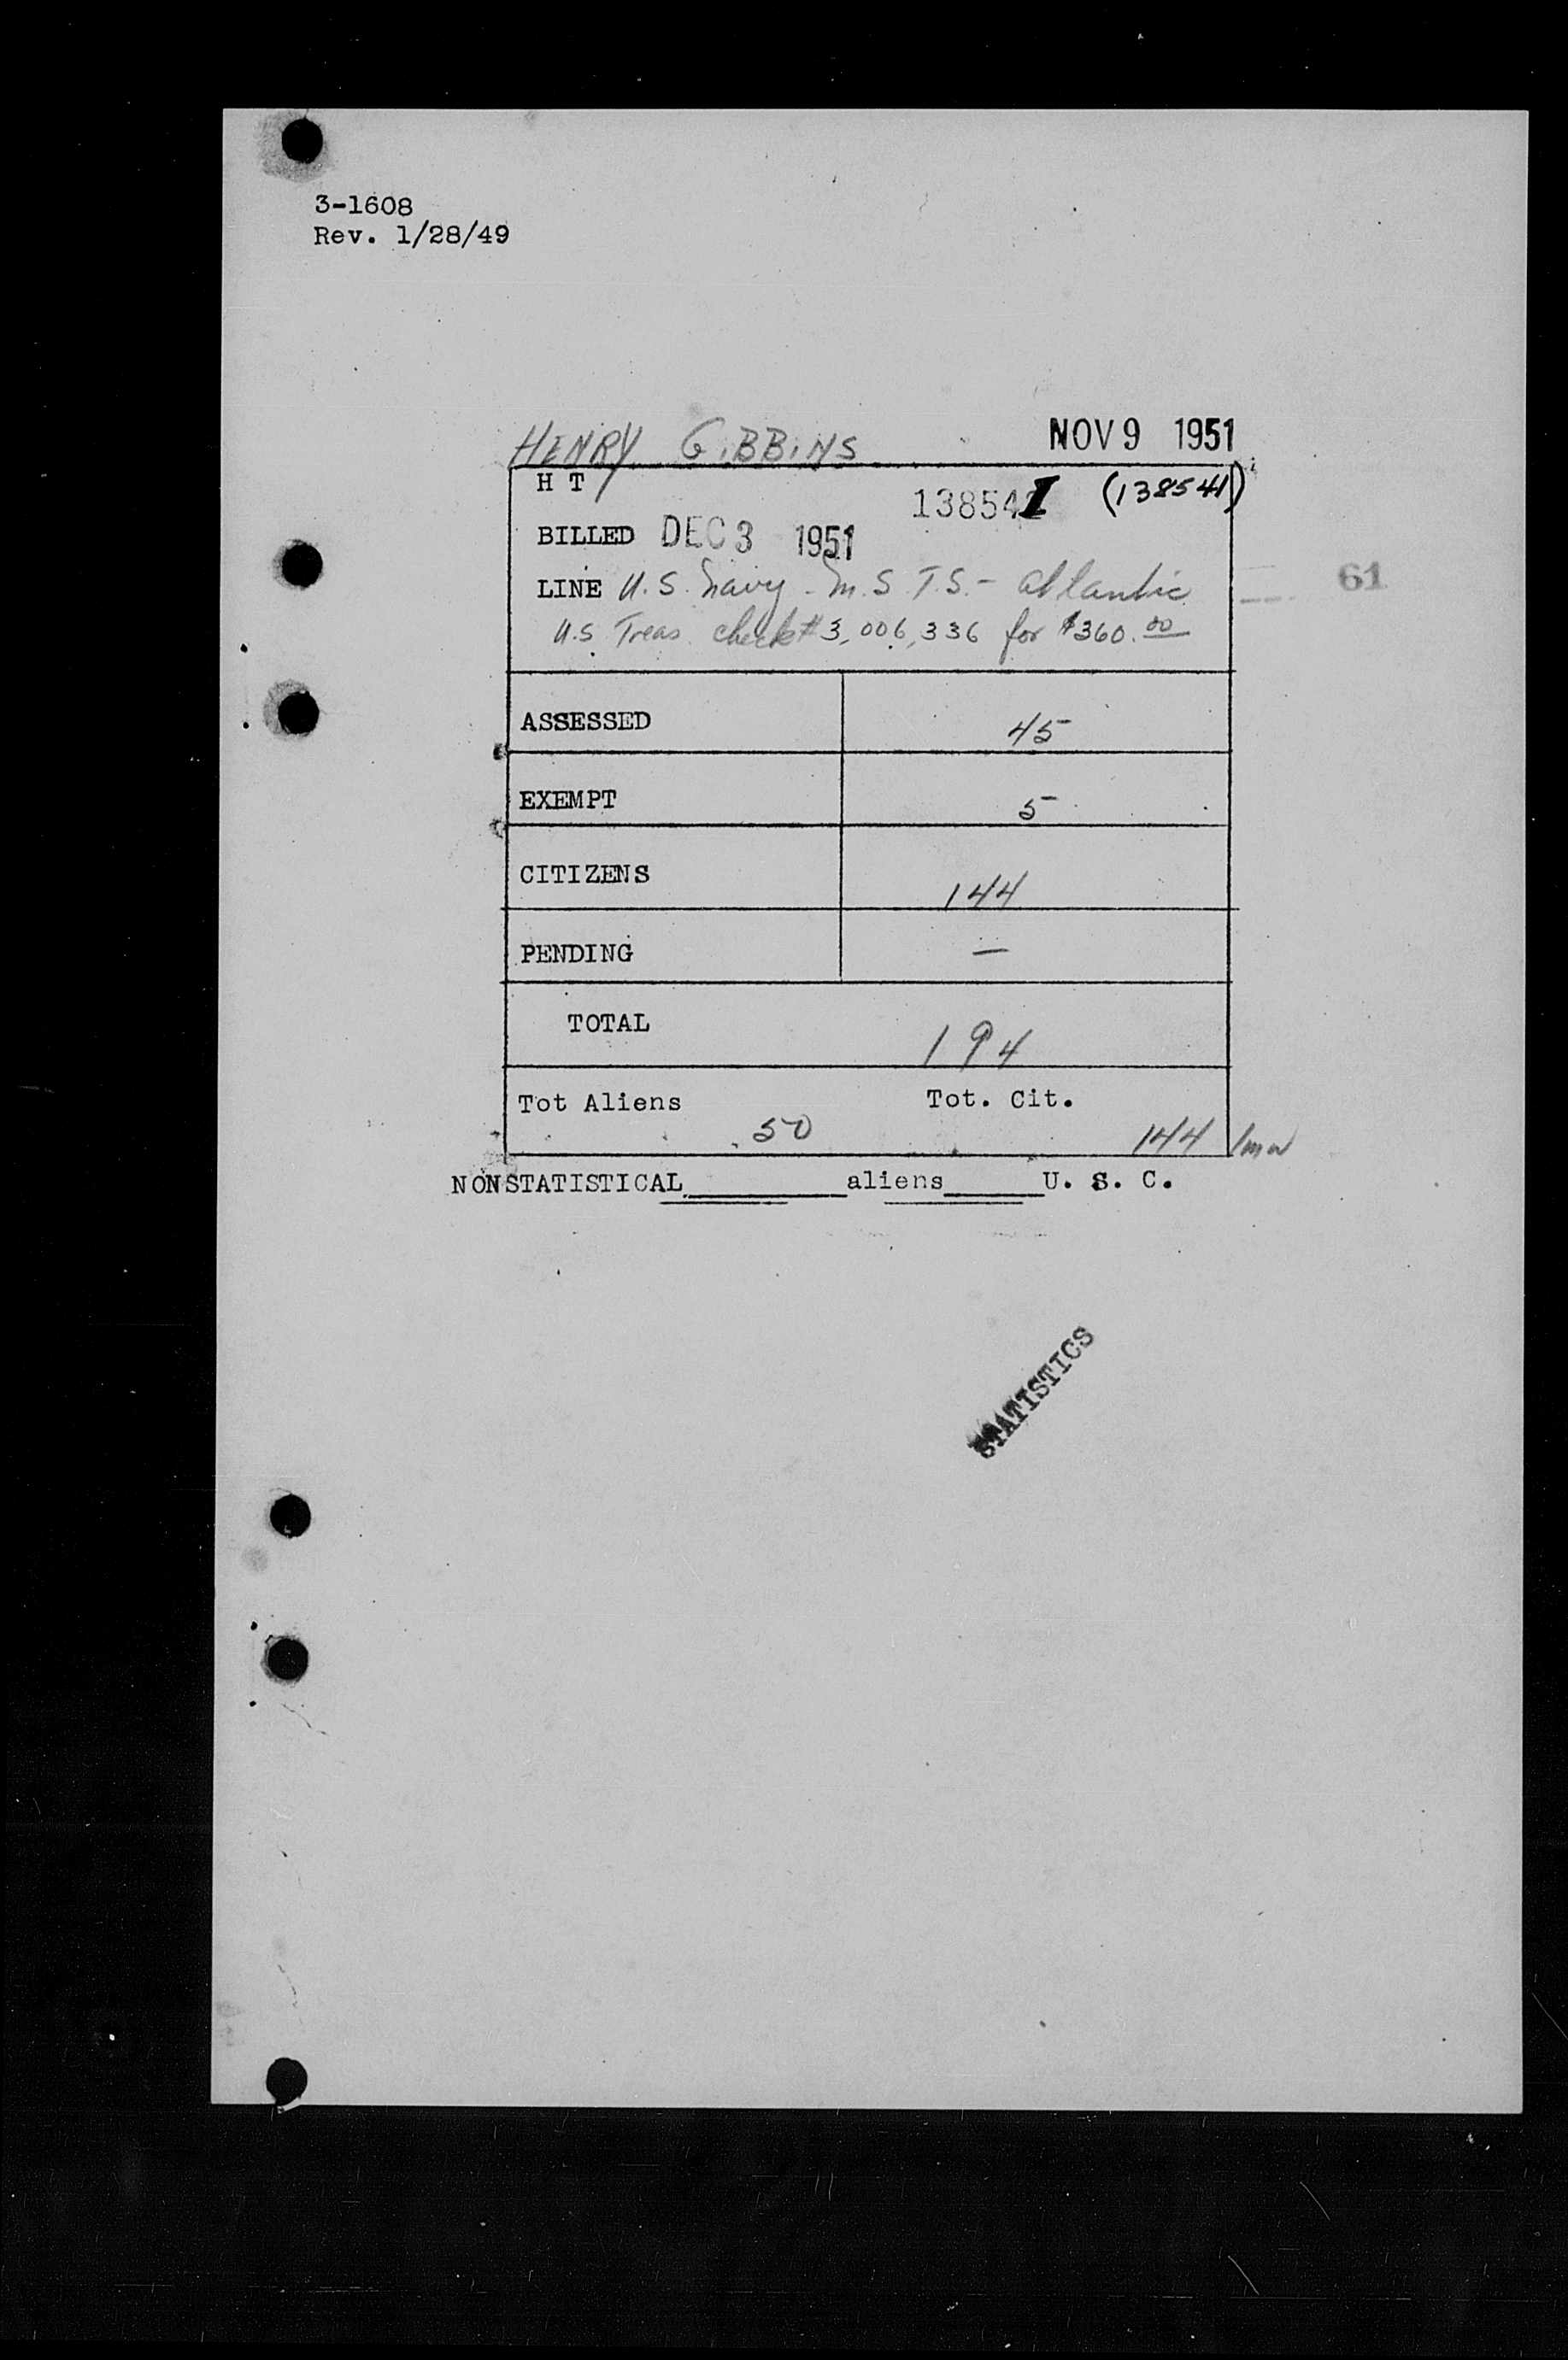 3-1608
Rev. 1/28/49
HENRY GIBBINS NOV 9 1951
H T
138541 (138541)
BILLED DEC 3 1951
LINE U.S. Navy - M.S.T.S. - Atlantic
61
U.S. Treas. check # 3,006,336 for $360.00
ASSESSED 45
EXEMPT 5
CITIZENS 144
PENDING —
TOTAL 194
Tot Aliens 50 Tot. Cit. 144 /mw
NONSTATISTICAL________aliens_____U. S. C.
STATISTICS